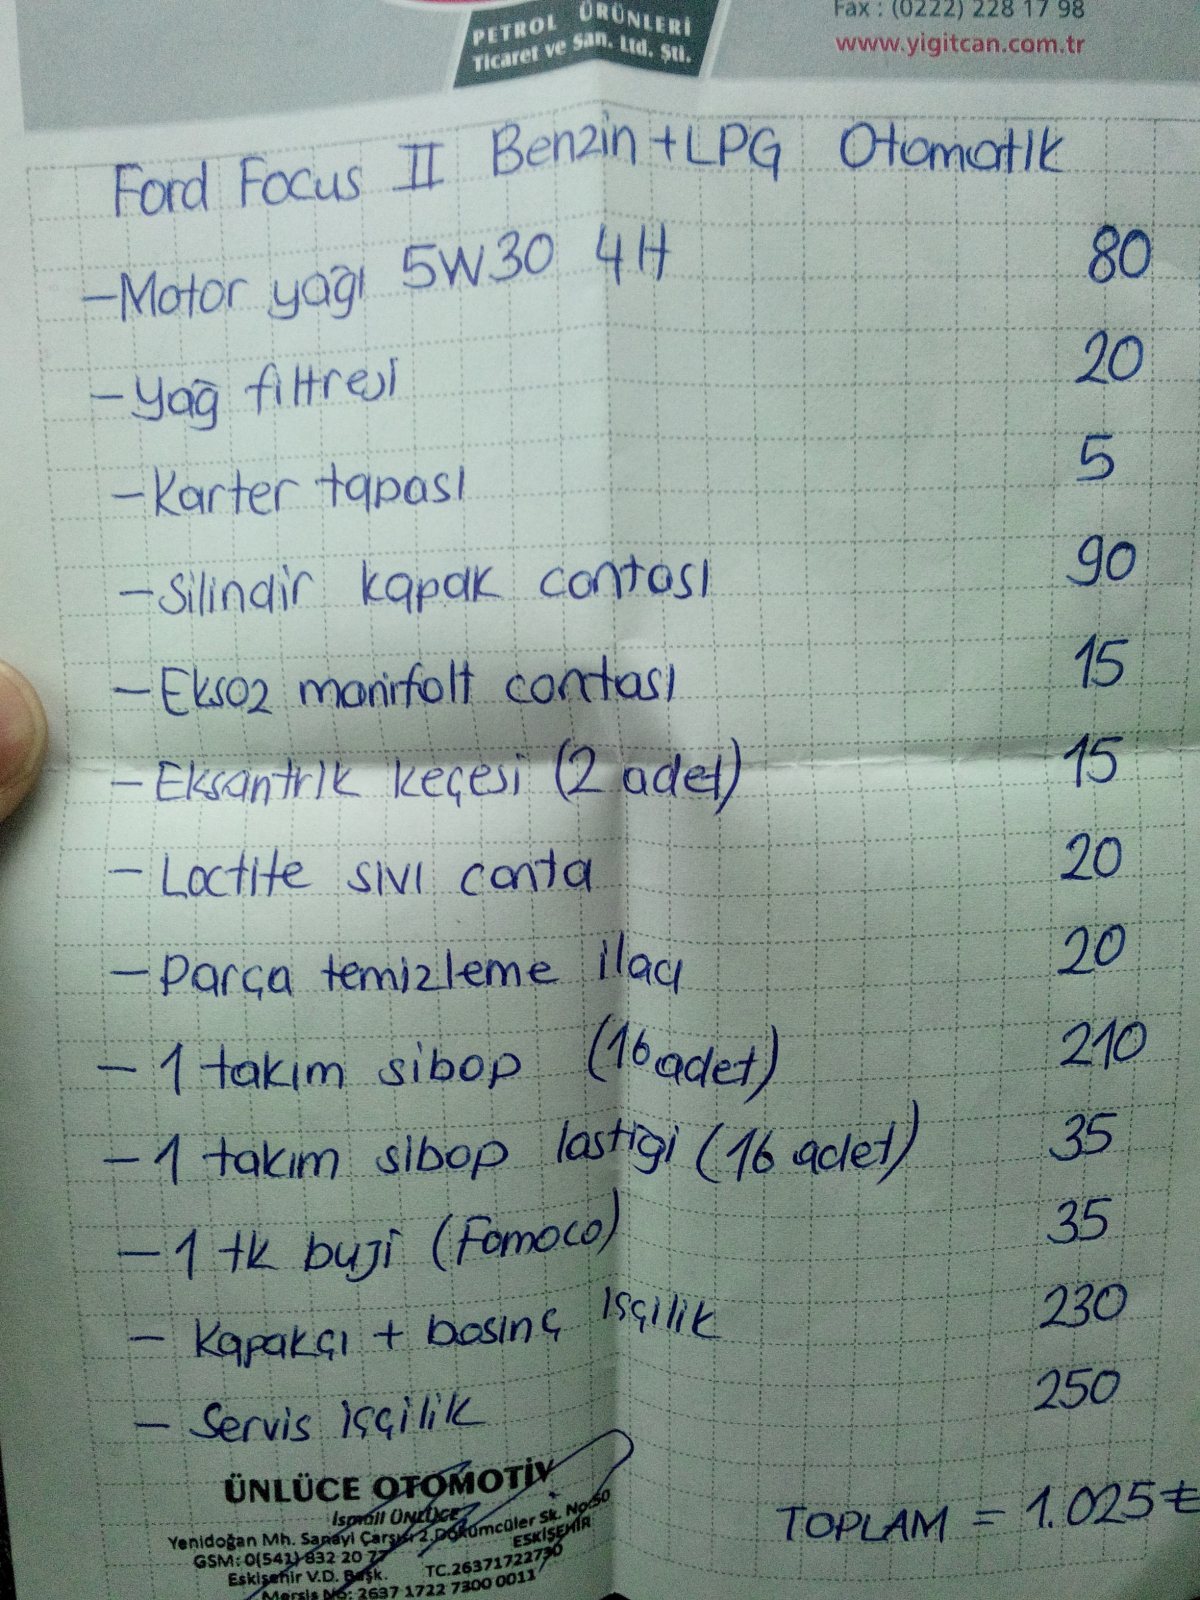 PETROL ÜRÜNLERİ
Ticaret ve San. Ltd. Şti.
Fax : (0222) 228 17 98
www.yigitcan.com.tr
Ford Focus II Benzin+LPG Otomatik
-Motor yağı 5W30 4H 80
-Yağ filtresi 20
-Karter tapası 5
-Silindir kapak contası 90
-Eksoz manifolt contası 15
-Eksantrik keçesi (2 adet) 15
-Loctite sıvı conta 20
-Parça temizleme ilacı 20
-1 takım sibop (16 adet) 210
-1 takım sibop lastiği (16 adet) 35
-1 tk buji (Fomoco) 35
-Kapakçı + basınç işçilik 230
-Servis işçilik 250
TOPLAM = 1.025₺
ÜNLÜCE OTOMOTİV
İsmail ÜNLÜCE
Yenidoğan Mh. Sanayi Çarşısı 2.Dökümcüler Sk. No:50
GSM: 0(541) 832 20 77 ESKİŞEHİR
Eskişehir V.D. Başk. TC.26371722730
Mersis No: 2637 1722 7300 0011